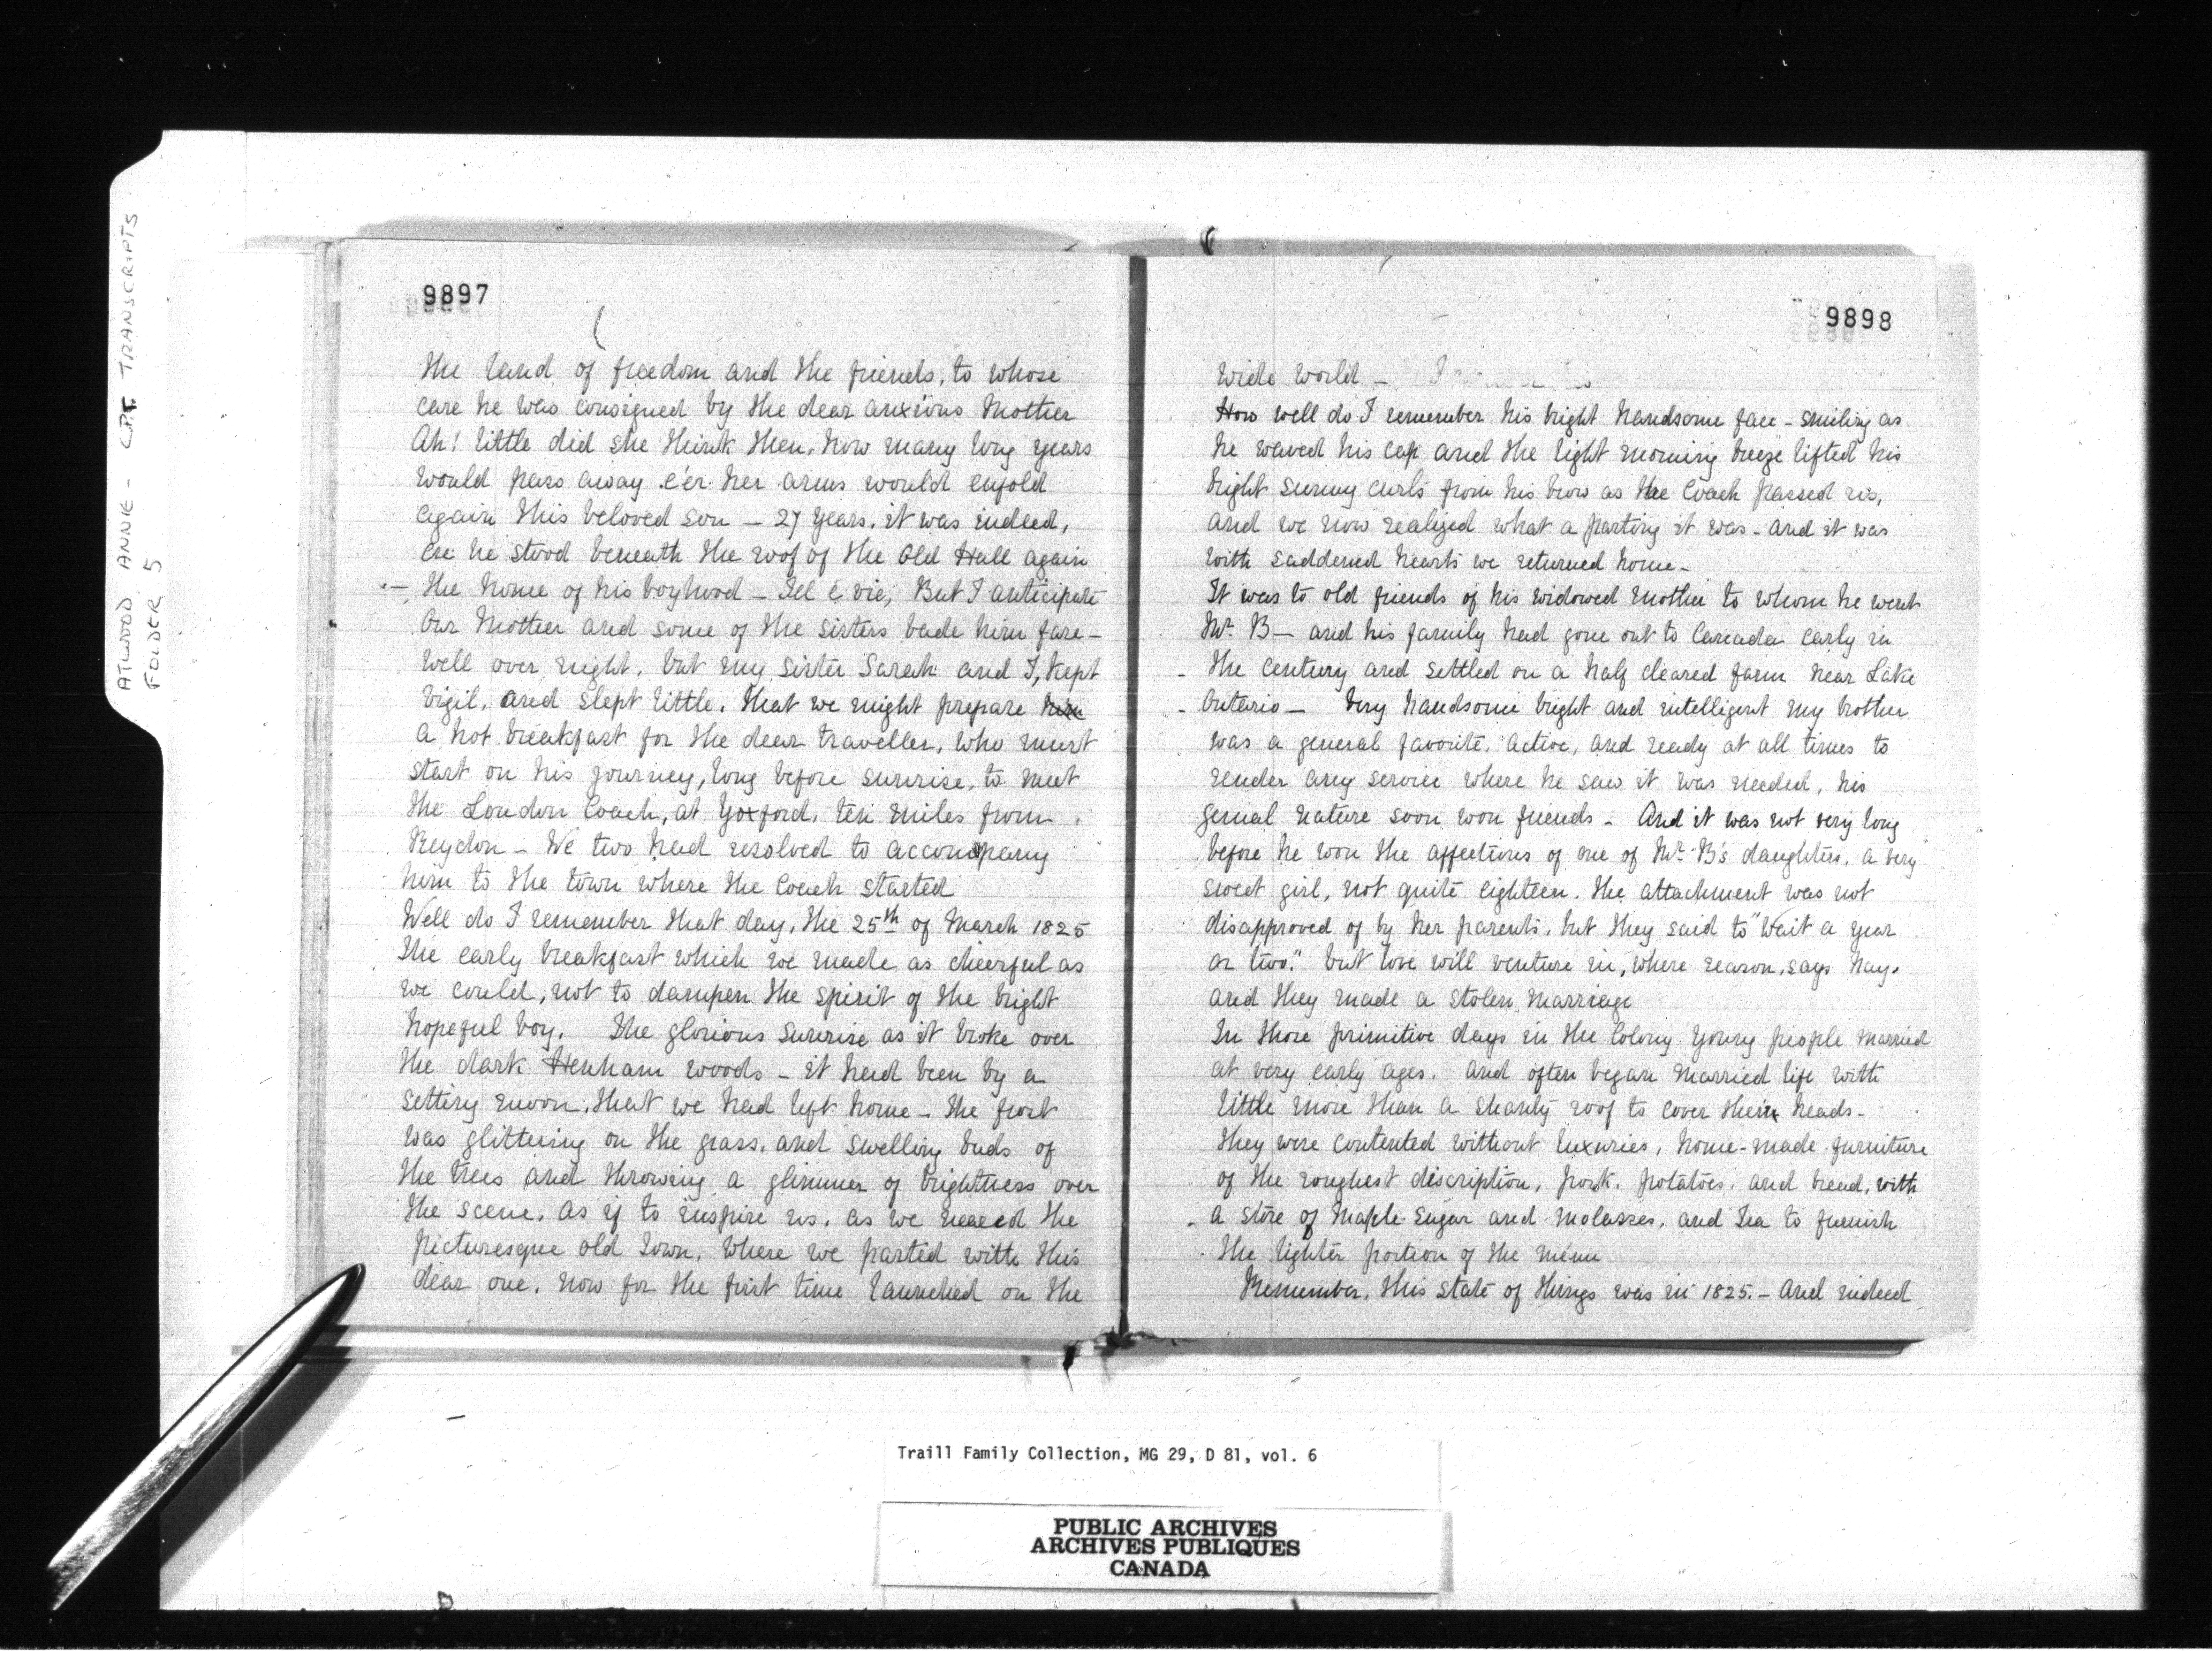 ATWOOD, ANNIE - CPT TRANSCRIPTS
FOLDER 5
9897
the land of freedom and the friends, to whose
care he was consigned by the dear anxious Mother
Ah! little did she think then, how many long years
would pass away e'er her arms would enfold
again this beloved son — 27 years, it was indeed,
ere he stood beneath the roof of the Old Hall again
— the home of his boyhood — Sel e vie, But I anticipate
Our Mother and some of the sisters bade him fare-
well over night, but my sister Sarah and I, kept
vigil, and slept little, that we might prepare him
a hot breakfast for the dear traveller, who must
start on his journey, long before sunrise, to meet
the London Coach, at Yoxford, ten miles from
Reydon — We two had resolved to accompany
him to the town where the Coach started
Well do I remember that day, the 25th of March 1825
The early breakfast which we made as cheerful as
we could, not to dampen the spirit of the bright
hopeful boy. The glorious sunrise as it broke over
the dark Henham woods — it had been by a
setting moon, that we had left home — The frost
was glittering on the grass, and swelling buds of
the trees and throwing a glimmer of brightness over
the scene, as if to inspire us, as we neared the
picturesque old Town, where we parted with this
dear one, now for the first time launched on the
9898
wide world —
How well do I remember his bright handsome face — smiling as
he waved his cap and the light morning breeze lifted his
bright sunny curls from his brow as the Coach passed us,
and we now realized what a parting it was — and it was
with saddened hearts we returned home —
It was to old friends of his widowed mother to whom he went
Mr. B— and his family had gone out to Canada early in
the century and settled on a half cleared farm near Lake
Ontario — Very handsome bright and intelligent my brother
was a general favorite, active, and ready at all times to
render any service where he saw it was needed, his
genial nature soon won friends — And it was not very long
before he won the affections of one of Mr. B's daughters, a very
sweet girl, not quite eighteen. The attachment was not
disapproved of by her parents, but they said to "Wait a year
or two." but love will venture in, where reason, says nay.
and they made a stolen marriage
In those primitive days in the Colony young people married
at very early ages, and often began married life with
little more than a shanty roof to cover their heads —
they were contented without luxuries, home-made furniture
of the roughest discription, pork, potatoes, and bread, with
a store of Maple Sugar and Molasses, and Tea to furnish
the lighter portion of the ménu
Remember, this state of things was in 1825. — And indeed
Traill Family Collection, MG 29, D 81, vol. 6
PUBLIC ARCHIVES
ARCHIVES PUBLIQUES
CANADA